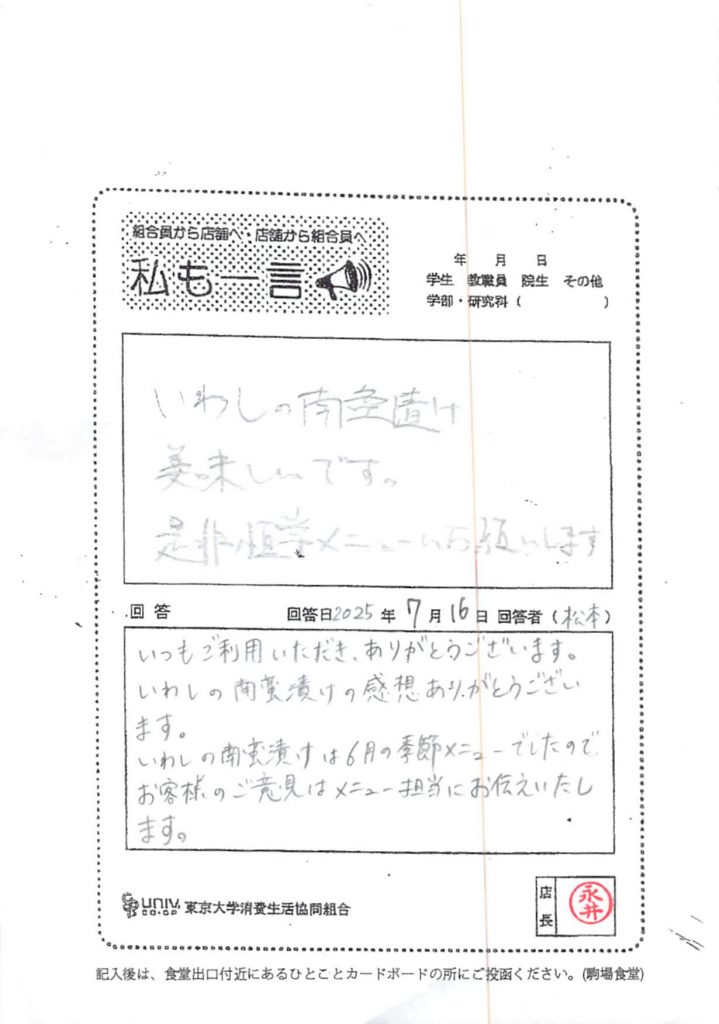 組合員から店舗へ・店舗から組合員へ
私も一言
年 月 日
学生 教職員 院生 その他
学部・研究科( )
いわしの南蛮漬け
美味しいです。
是非恒常メニューにお願いします
回答 回答日2025年7月16日 回答者(松本)
いつもご利用いただき、ありがとうございます。
いわしの南蛮漬けの感想ありがとうござい
ます。
いわしの南蛮漬けは6月の季節メニューでしたので
お客様のご意見はメニュー担当にお伝えいたし
ます。
UNIV.
CO-OP
東京大学消費生活協同組合
店長
永井
記入後は、食堂出口付近にあるひとことカードボードの所にご投函ください。(駒場食堂)